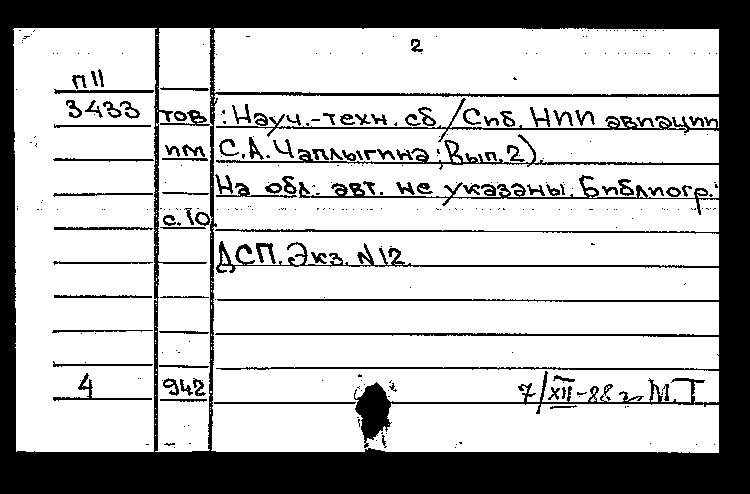 2
П11
3433 тов : Науч.-техн. сб. / Сиб. НИИ авиации
им С.А. Чаплыгина; Вып. 2).
На обл. авт. не указаны. Библиогр.:
с. 10.
ДСП. Экз. N 12.
4 942 7/XII-88 г М.Т.